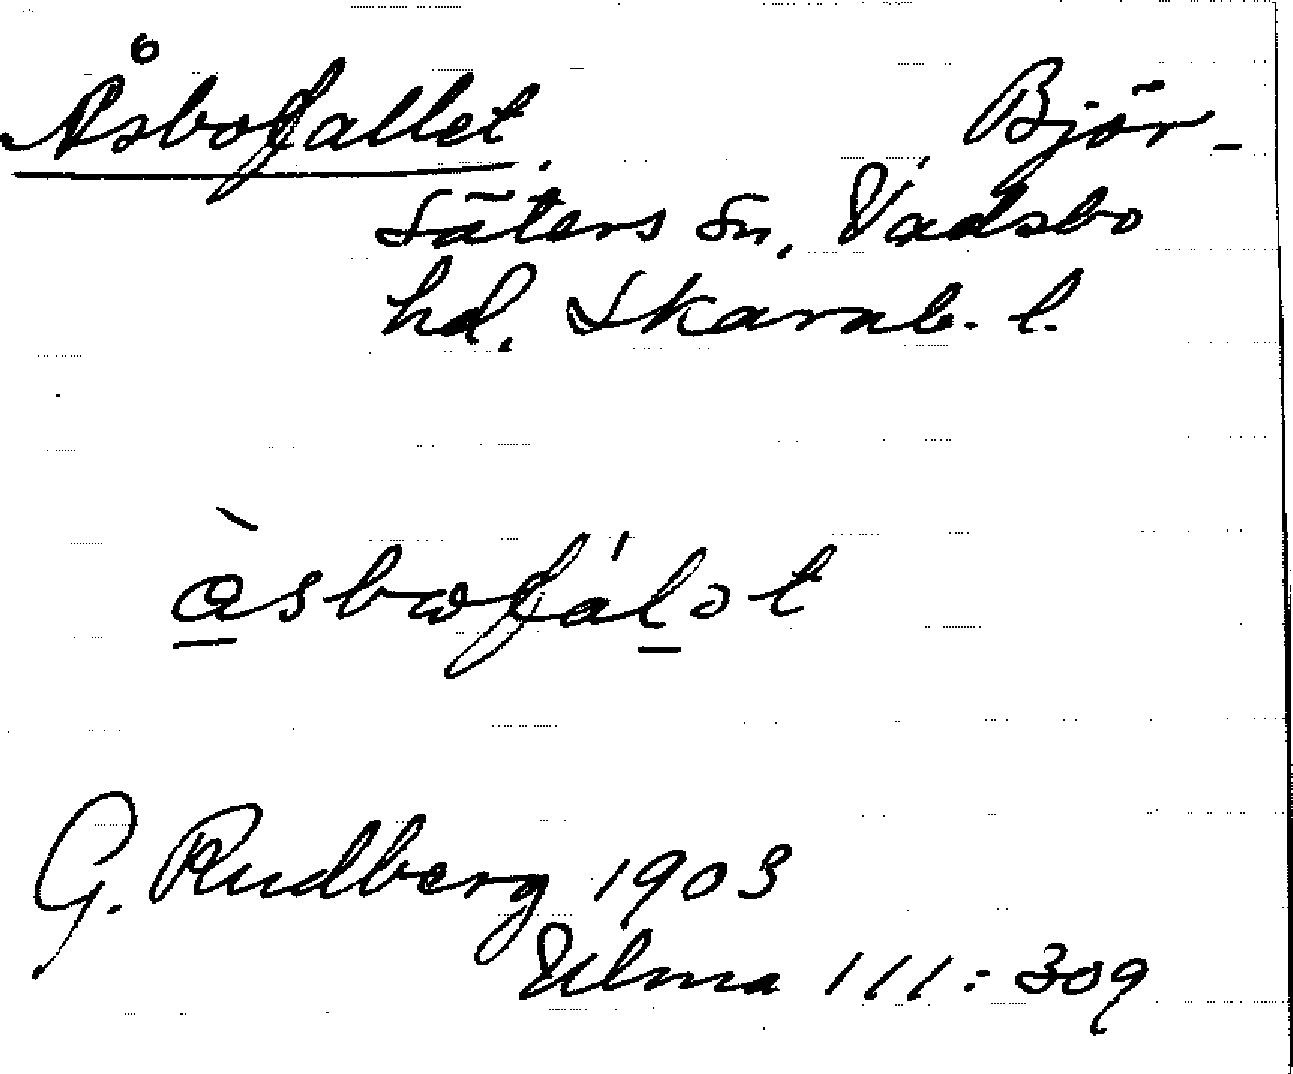 Åsbofallet. Björ-
säters sn, Vadsbo
hd, Skarab. l.
àsbωfálət
G. Rudberg 1903
Ulma 111:309